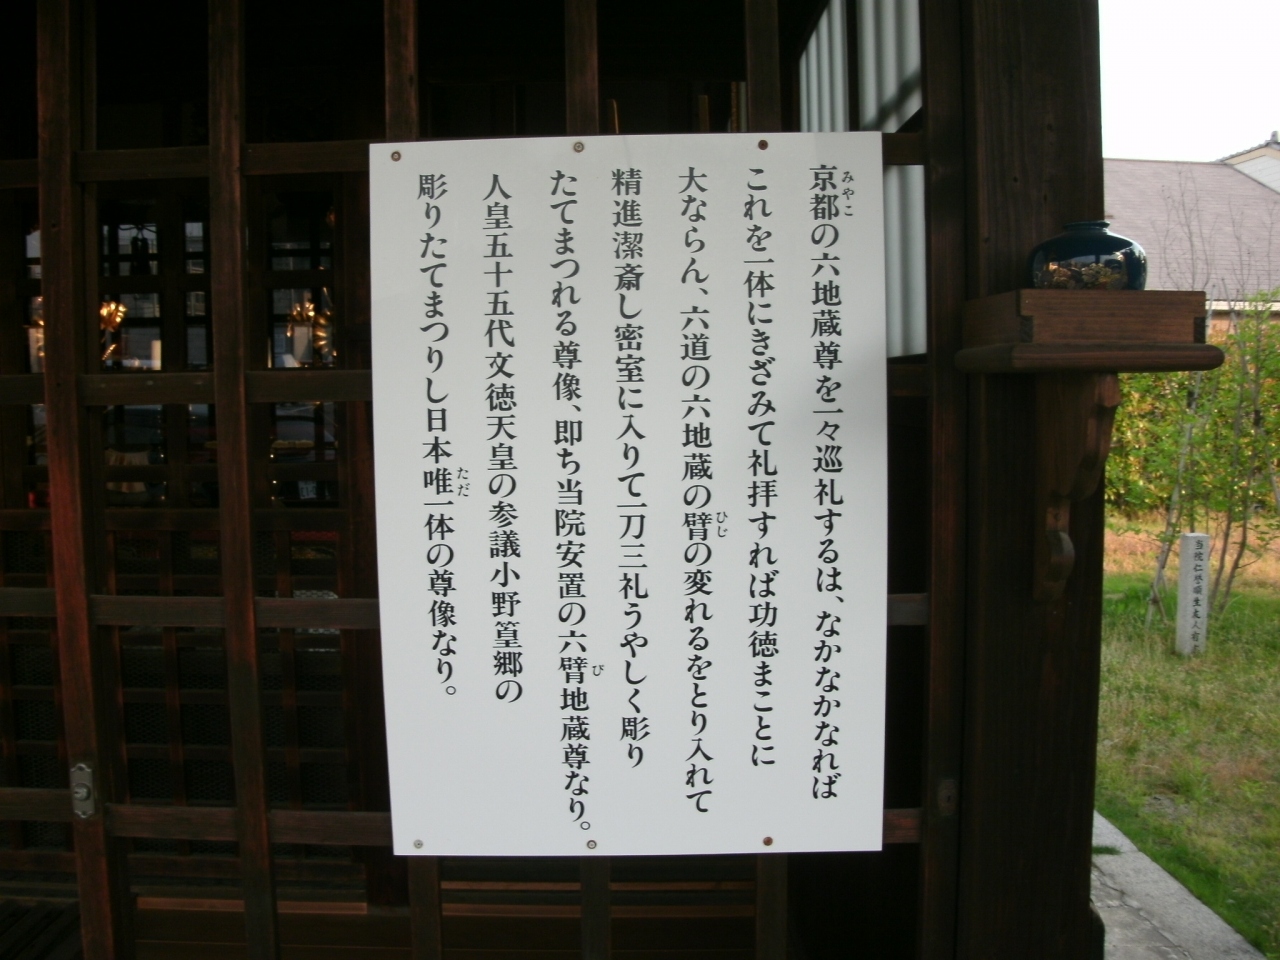 京都の六地蔵尊を一々巡礼するは、なかなかなれば
みやこ
これを一体にきざみて礼拝すれば功徳まことに
大ならん、六道の六地蔵の臂の変れるをとり入れて
ひじ
精進潔斎し密室に入りて一刀三礼うやしく彫り
たてまつれる尊像、即ち当院安置の六臂地蔵尊なり。
び
人皇五十五代文徳天皇の参議小野篁郷の
彫りたてまつりし日本唯一体の尊像なり。
ただ